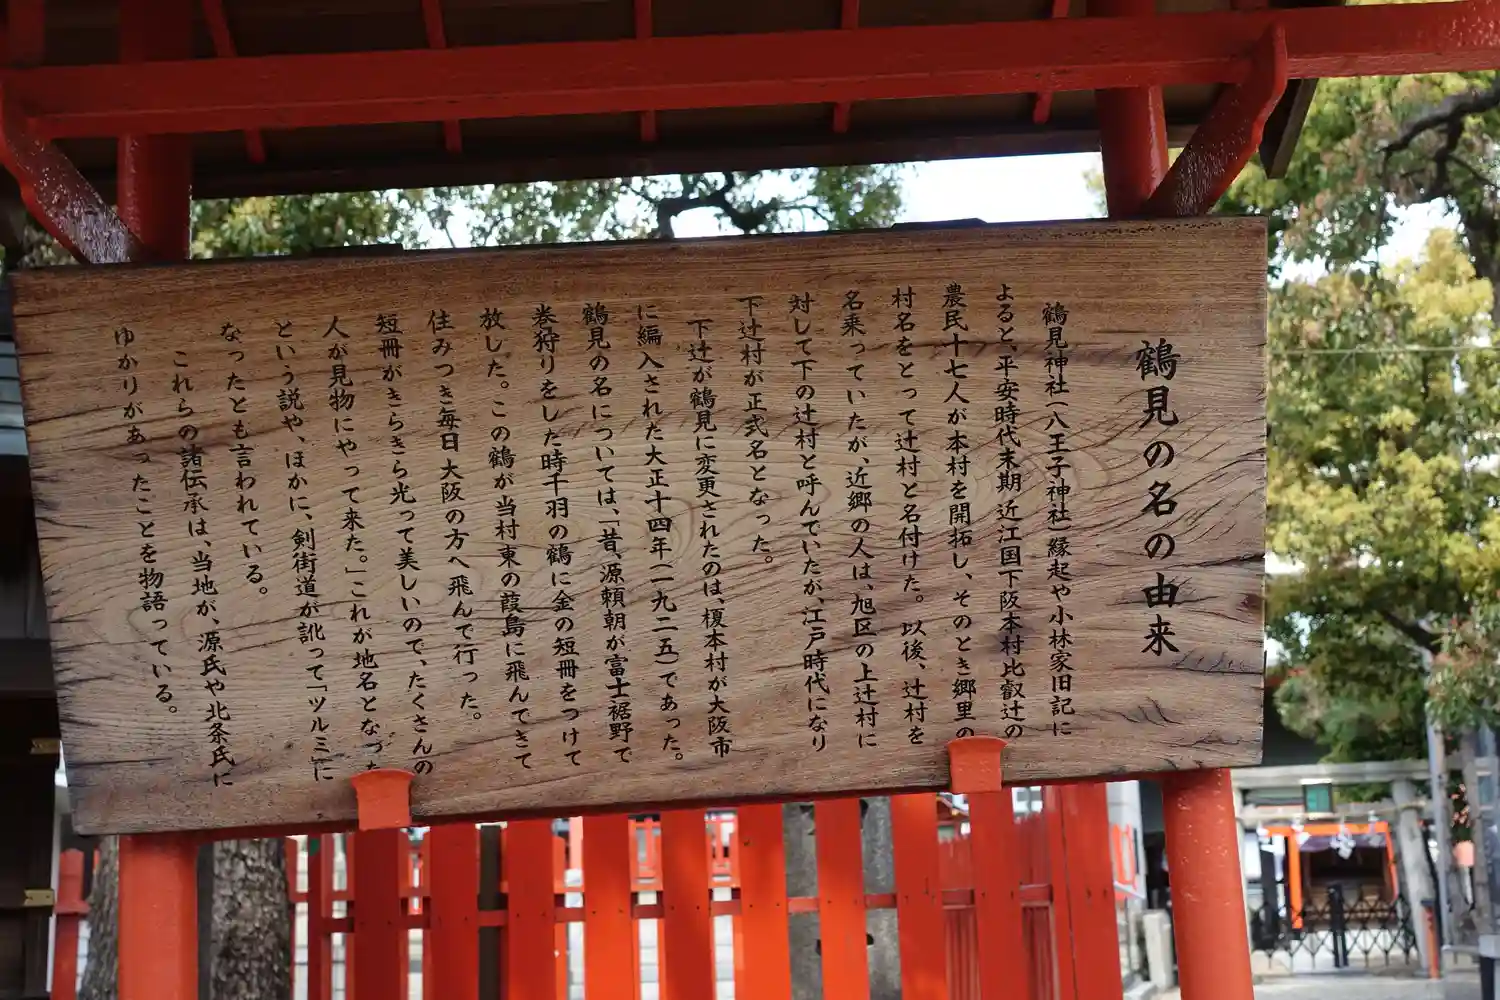 鶴見の名の由来
鶴見神社(八王子神社)縁起や小林家旧記に
よると、平安時代末期近江国下阪本村比叡辻の
農民十七人が本村を開拓し、そのとき郷里の
村名をとって辻村と名付けた。以後、辻村を
名乗っていたが、近郷の人は、旭区の上辻村に
対して下の辻村と呼んでいたが、江戸時代になり
下辻村が正式名となった。
下辻が鶴見に変更されたのは、榎本村が大阪市
に編入された大正十四年(一九二五)であった。
鶴見の名については、「昔、源頼朝が富士裾野で
巻狩りをした時千羽の鶴に金の短冊をつけて
放した。この鶴が当村東の葭島に飛んできて
住みつき毎日大阪の方へ飛んで行った。
短冊がきらきら光って美しいので、たくさんの
人が見物にやって来た。」これが地名となった
という説や、ほかに、剣街道が訛って「ツルミ」に
なったとも言われている。
これらの諸伝承は、当地が、源氏や北条氏に
ゆかりがあったことを物語っている。